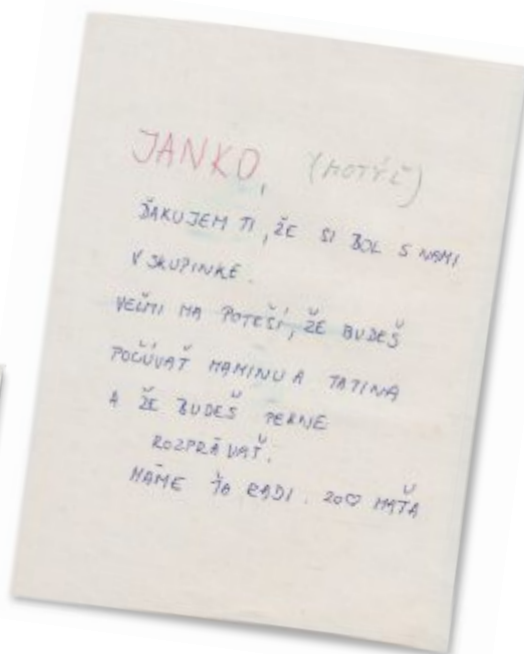 JANKO, (MOTÝĽ)
ĎAKUJEM TI, ŽE SI BOL S NAMI
V SKUPINKE.
VEĽMI MA POTEŠÍ, ŽE BUDEŠ
POČÚVAŤ MAMINU A TATINA
A ŽE BUDEŠ PEKNE
ROZPRÁVAŤ.
MÁME ŤA RADI. ZO ♡ MAŤA